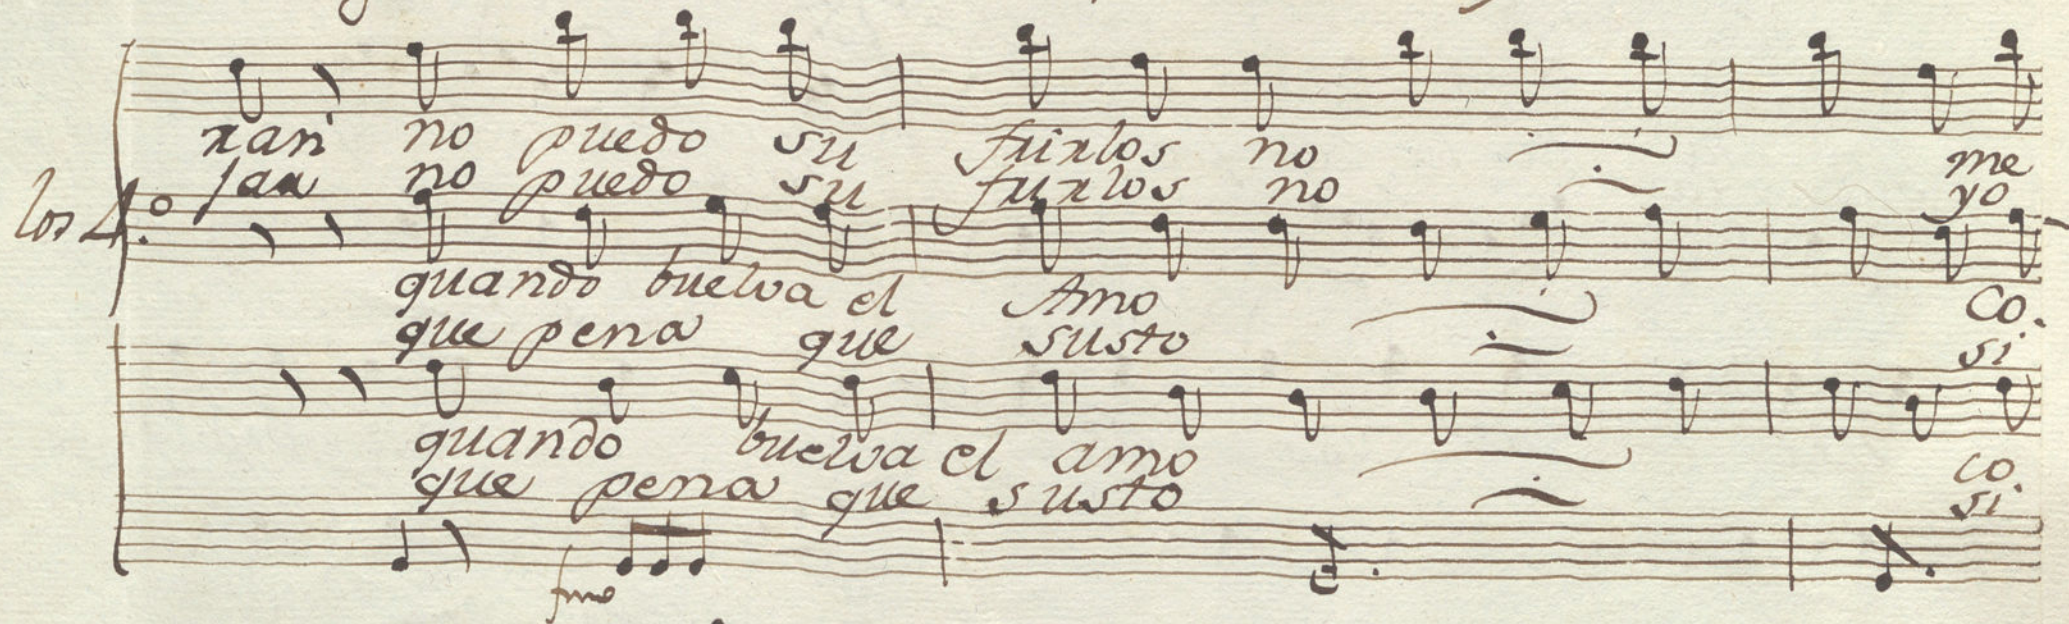 ran no puedo su frirlos no me
sar no puedo su frirlos no yo
los 4.º
quando buelva el Amo co.
que pena que susto si
quando buelva el amo co.
que pena que susto si
fmo